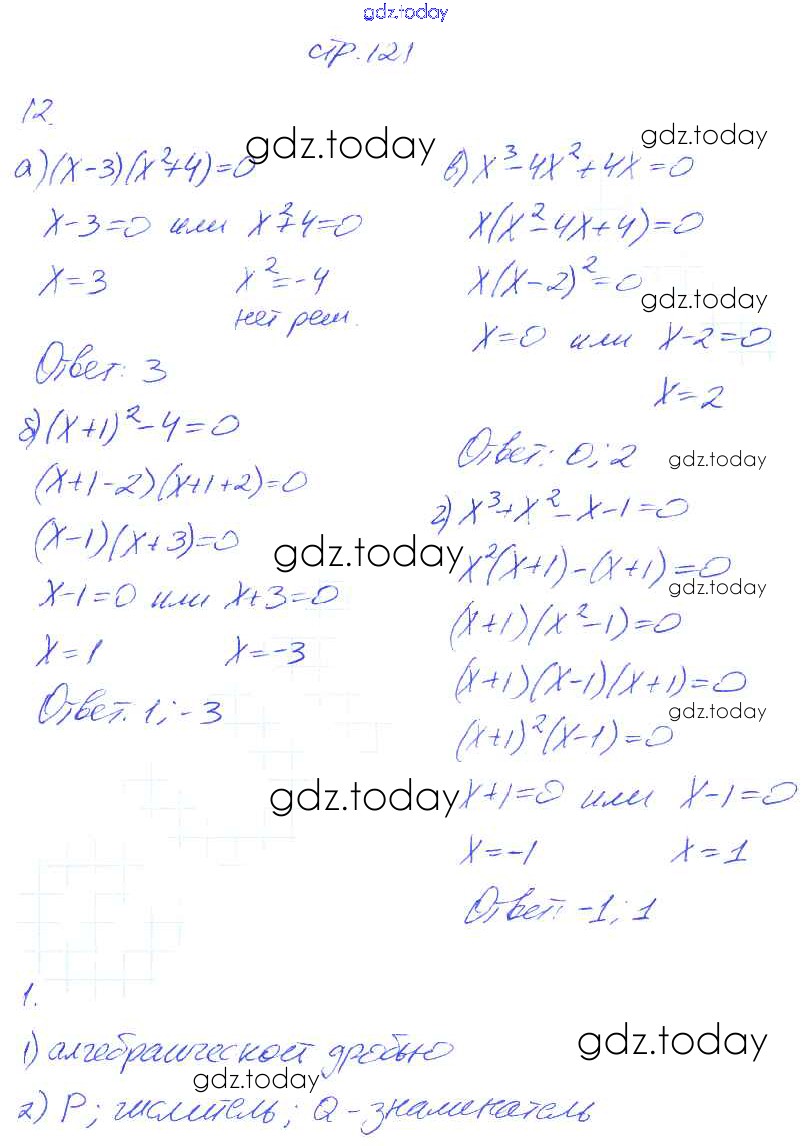 gdz.today
стр. 121
12.
а) (x-3)(x²+4)=0
x-3=0 или x²+4=0
x=3 x²=-4
нет реш.
Ответ: 3
б) (x+1)²-4=0
(x+1-2)(x+1+2)=0
(x-1)(x+3)=0
x-1=0 или x+3=0
x=1 x=-3
Ответ: 1; -3
gdz.today
gdz.today
gdz.today
в) x³-4x²+4x=0
x(x²-4x+4)=0
x(x-2)²=0
x=0 или x-2=0
x=2
Ответ: 0; 2
г) x³+x²-x-1=0
x²(x+1)-(x+1)=0
(x+1)(x²-1)=0
(x+1)(x-1)(x+1)=0
(x+1)²(x-1)=0
x+1=0 или x-1=0
x=-1 x=1
Ответ: -1; 1
gdz.today
gdz.today
gdz.today
gdz.today
gdz.today
1.
1) алгебраической дробью
2) P; числитель; Q - знаменатель
gdz.today
gdz.today